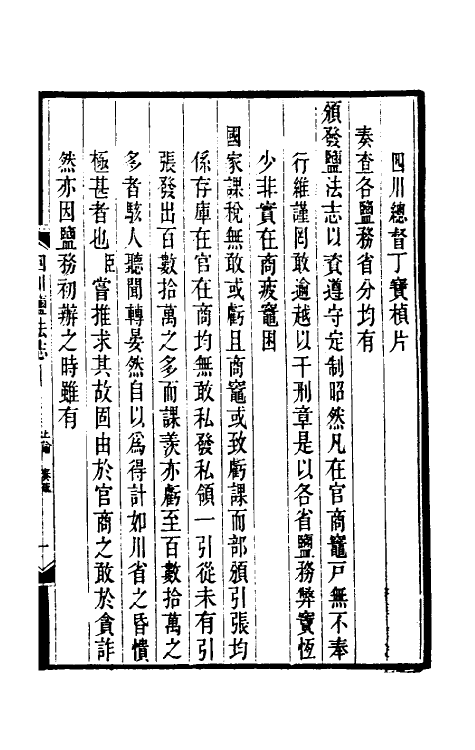 四川總督丁寶楨片
奏查各鹽務省分均有
頒發鹽法志以資遵守定制昭然凡在官商竈戶無不奉
行維謹罔敢逾越以干刑章是以各省鹽務弊竇恆
少非實在商疲竈困
國家課稅無敢或虧且商竈或致虧課而部頒引張均
係存庫在官在商均無敢私發私領一引從未有引
張發出百數拾萬之多而課羨亦虧至百數拾萬之
多者駭人聽聞轉晏然自以爲得計如川省之昏憒
極甚者也臣嘗推求其故固由於官商之敢於貪詐
然亦因鹽務初辦之時雖有
四川鹽法志
上諭 奏疏
一